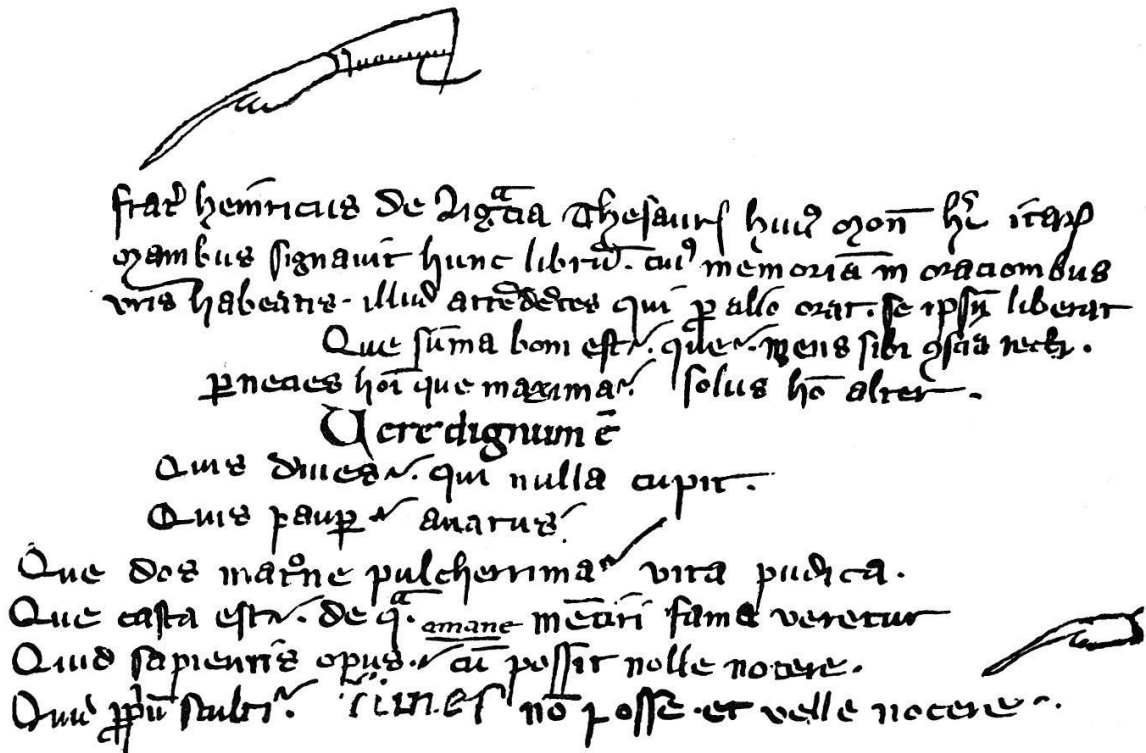 frat᷒ heinricus de Ligͣcia Thesaur huiꝰ mon̄ hͨ
manibus signauit hunc librū. cuiꝰ memoriā in oracionibus
vr̄is habeatis. illud attēdētes qui ꝑ alio orat. se ipsū liberat
Que sūma boni est. que. mens sibi ꝯscia recti.
ꝑnecies hoı̄ que maxima solus hō alter.
Uere dignum ē
Quis diues. qui nulla cupit.
Quis pauꝑ auarus.
Que dos mat°ne pulcherrima vita pudica.
Que casta est. de qͣ. mētiri fama veretur
Quid sapientis opus. cū possit nolle nocere.
Quid ꝓpⁱū stulti. nō posse. et velle nocere.